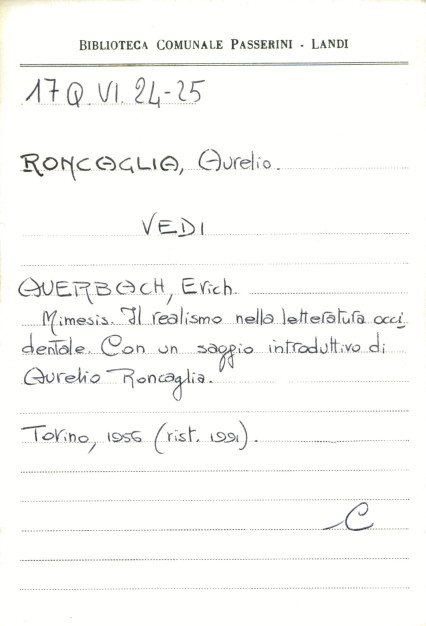 BIBLIOTECA COMUNALE PASSERINI - LANDI
17 Q. VI. 24-25
RONCAGLIA, Aurelio.
VEDI
AUERBACH, Erich.
Mimesis. Il realismo nella letteratura occi
dentale. Con un saggio introduttivo di
Aurelio Roncaglia.
Torino, 1956 (rist. 1991).
C